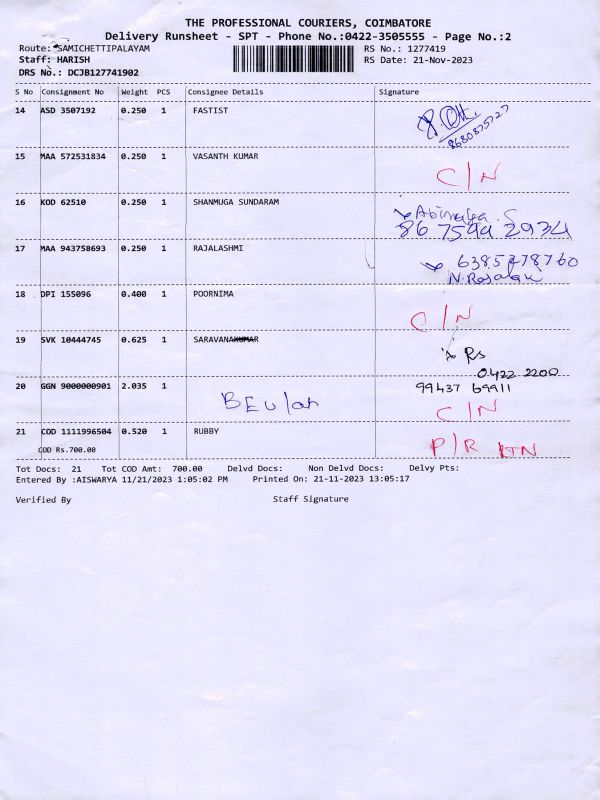 THE PROFESSIONAL COURIERS, COIMBATORE
Delivery Runsheet - SPT - Phone No.:0422-3505555 - Page No.:2
Route: SAMICHETTIPALAYAM RS No.: 1277419
Staff: HARISH RS Date: 21-Nov-2023
DRS No.: DCJB127741902
S No Consignment No Weight PCS Consignee Details Signature
14 ASD 3507192 0.250 1 FASTIST
8680875727
15 MAA 572531834 0.250 1 VASANTH KUMAR C/N
16 KOD 62510 0.250 1 SHANMUGA SUNDARAM
86 7594 2934
17 MAA 943758693 0.250 1 RAJALASHMI 6385278760
18 DPI 155096 0.400 1 POORNIMA C/N
19 SVK 10444745 0.625 1 SARAVANAKUMAR Rs
0422 2200
20 GGN 9000000901 2.035 1 99437 69911
BEUlah C/N
21 COD 1111996504 0.520 1 RUBBY P/R
COD Rs.700.00
Tot Docs: 21 Tot COD Amt: 700.00 Delvd Docs: Non Delvd Docs: Delvy Pts:
Entered By :AISWARYA 11/21/2023 1:05:02 PM Printed On: 21-11-2023 13:05:17
Verified By Staff Signature